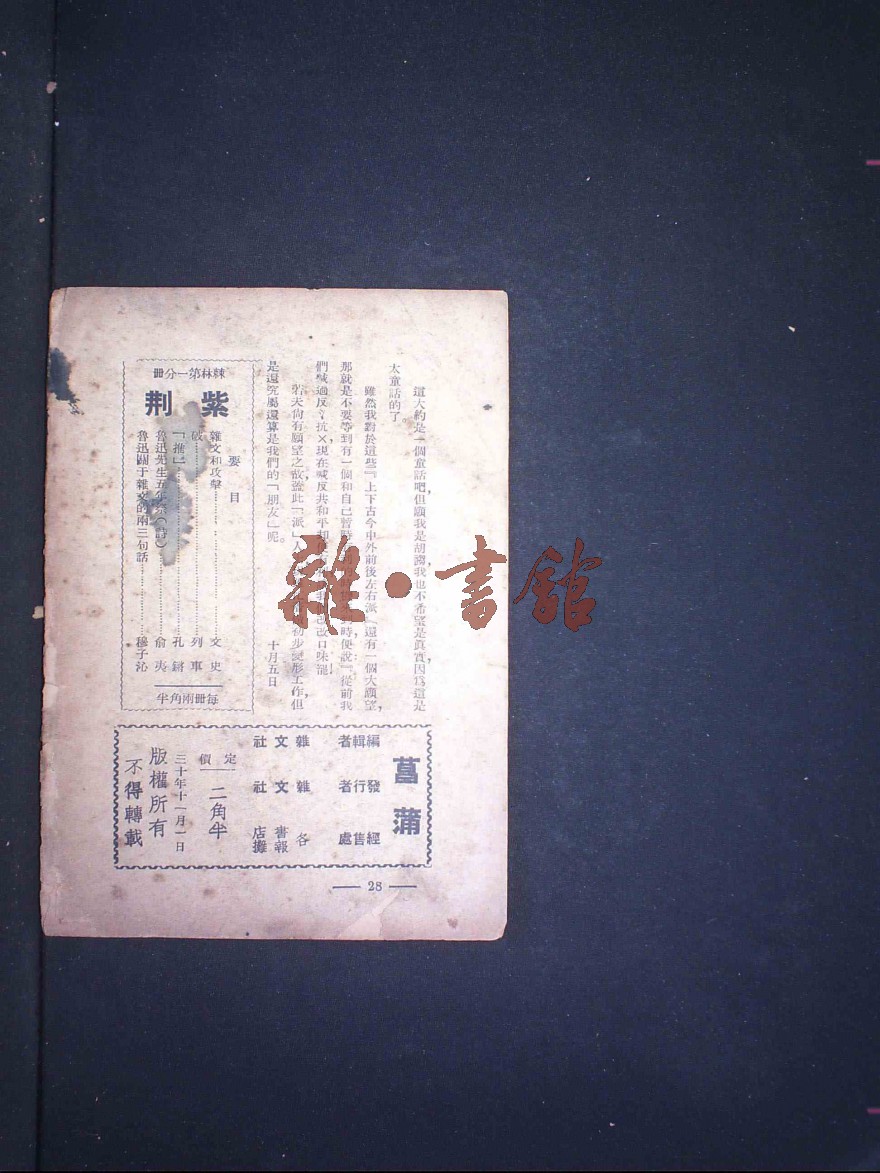 這大約是一個童話吧,但願我是胡謅,我也不希望是真實,因爲這是
太童話的了。
雖然我對於這些『上下古今中外前後左右派』還有一個大願望,
那就是不要等到有一個和自己暫時 時便說:『從前我
們喊過反 抗×現在喊反共和平却 改改口味罷
若天尚有願望之故,蓋此「派」人 初步 形工作,但
是追究屬還算是我們的「朋友」呢。
十月五日
棘林第一分冊
紫荆
要目
雜文和攻擊 文史
破 列車
「推」 孔鏘
魯迅先生五年祭(詩) 俞夷
魯迅關于雜文的兩三句話 穆子沁
每冊兩角半
菖蒲
編輯者 雜文社
發行者 雜文社
經售處 各書報店攤
定價 二角半
三十年十一月一日
版權所有
不得轉載
— 28 —
雜·書館